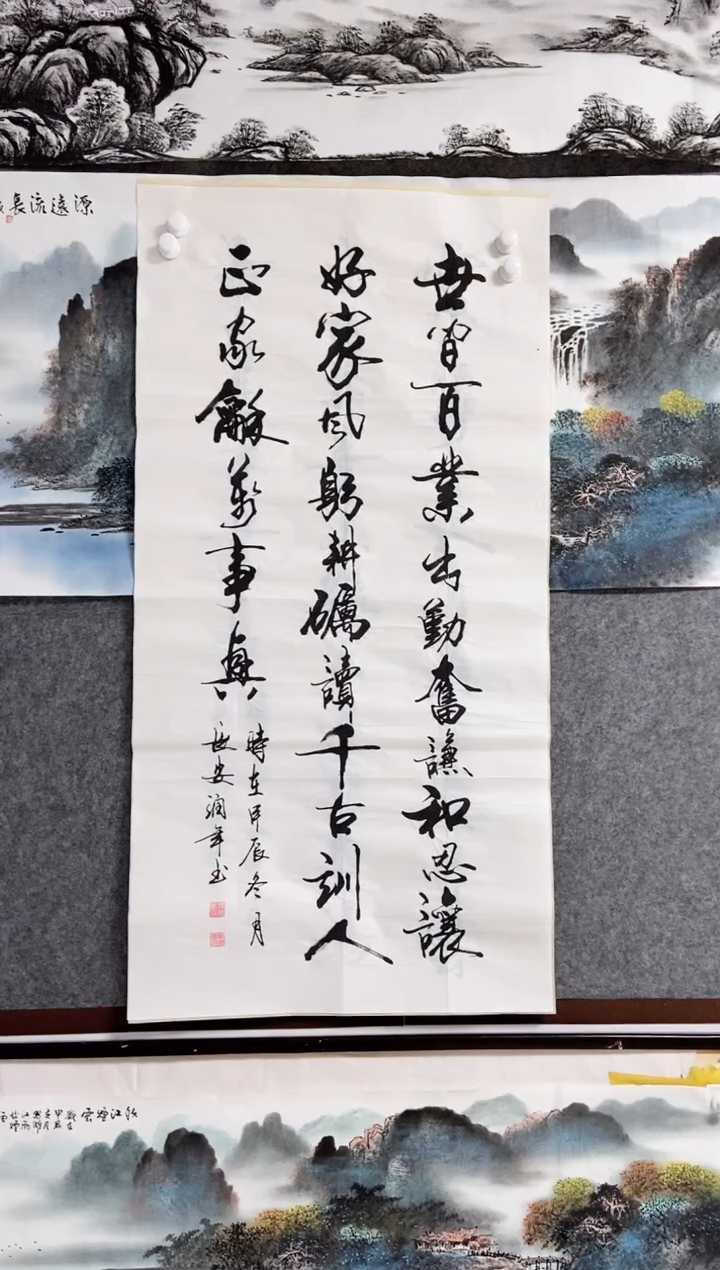 世間百業出勤奮謙和忍讓
好家風躬耕礪讀千古訓人
正家龢萬事興
時在甲辰冬月
長安潤年书
源遠流長